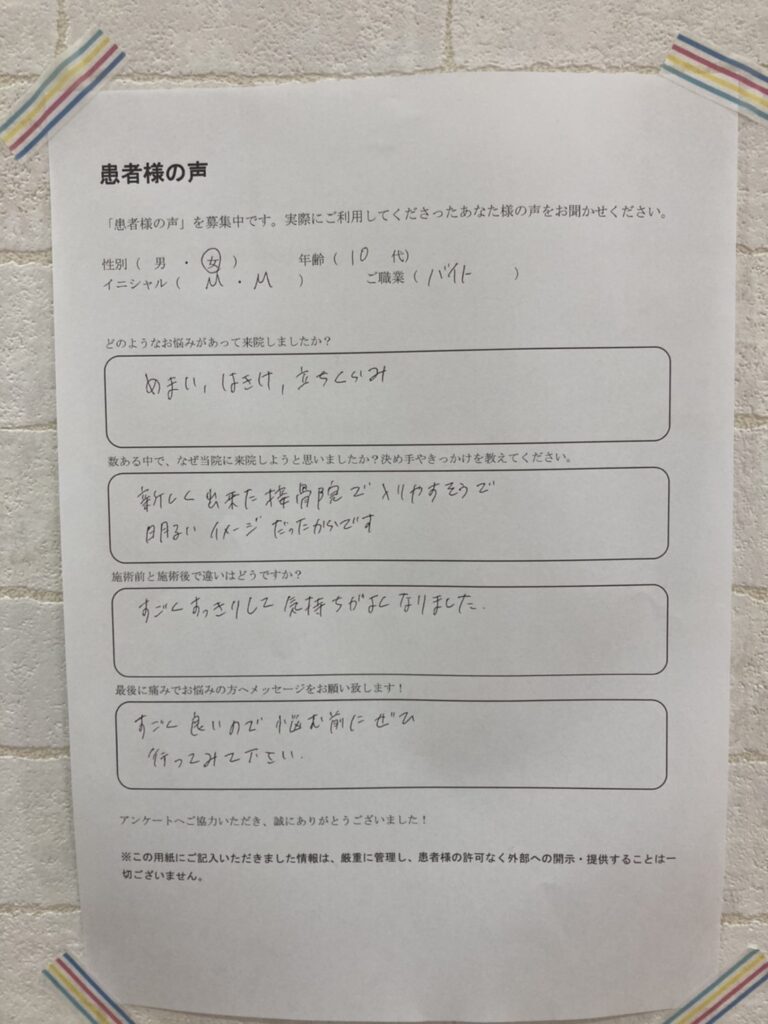 患者様の声
「患者様の声」を募集中です。実際にご利用してくださったあなた様の声をお聞かせください。
性別（ 男 ・ 女 ） 年齢（ 10 代）
イニシャル（ M ・ M ） ご職業（ バイト ）
どのようなお悩みがあって来院しましたか？
めまい, はきけ, 立ちくらみ
数ある中で、なぜ当院に来院しようと思いましたか？決め手やきっかけを教えてください。
新しく出来た接骨院で入りやすそうで
明るいイメージだったからです
施術前と施術後で違いはどうですか？
すごくすっきりして気持ちがよくなりました.
最後に痛みでお悩みの方へメッセージをお願い致します！
すごく良いので悩む前にぜひ
行ってみて下さい.
アンケートへご協力いただき、誠にありがとうございました！
※この用紙にご記入いただきました情報は、厳重に管理し、患者様の許可なく外部への開示・提供することは一
切ございません。